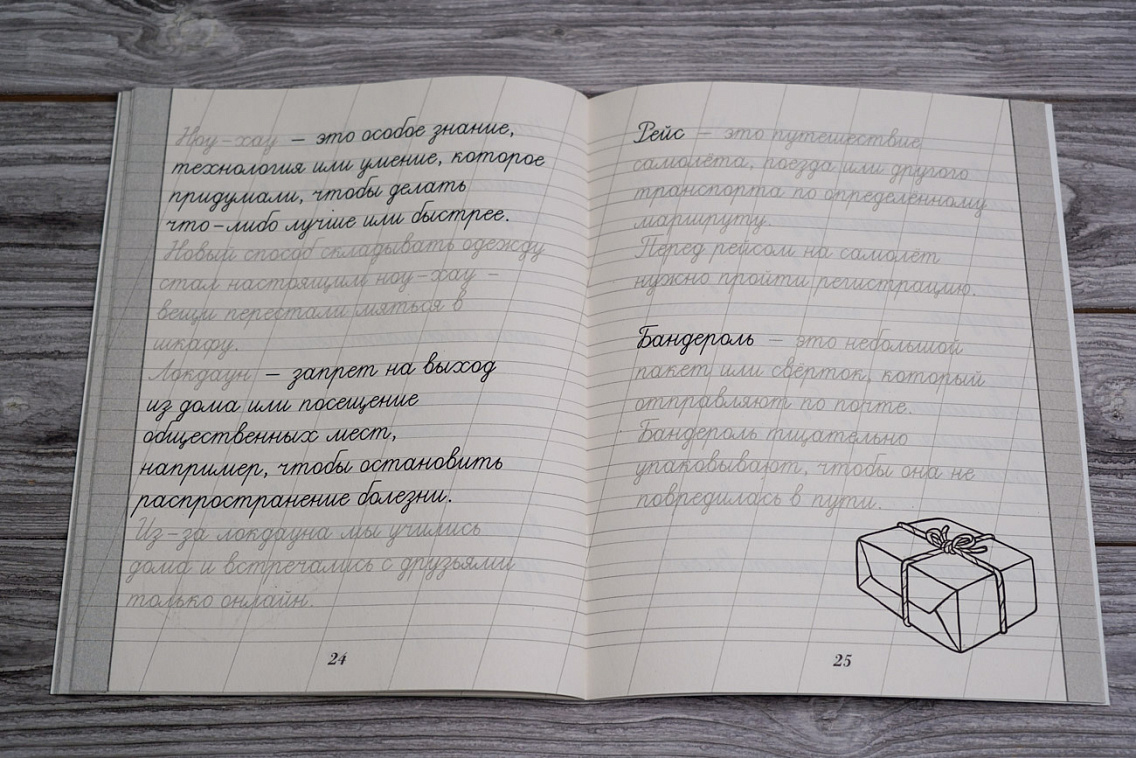 Ноу-хау – это особое знание,
технология или умение, которое
придумали, чтобы делать
что-либо лучше или быстрее.
Новый способ складывать одежду
стал настоящим ноу-хау –
вещи перестали мяться в
шкафу.
Локдаун – запрет на выход
из дома или посещение
общественных мест,
например, чтобы остановить
распространение болезни.
Из-за локдауна мы учились
дома и встречались с друзьями
только онлайн.
24
Рейс – это путешествие
самолёта, поезда или другого
транспорта по определённому
маршруту.
Перед рейсом на самолёт
нужно пройти регистрацию.
Бандероль – это небольшой
пакет или свёрток, который
отправляют по почте.
Бандероль тщательно
упаковывают, чтобы она не
повредилась в пути.
25